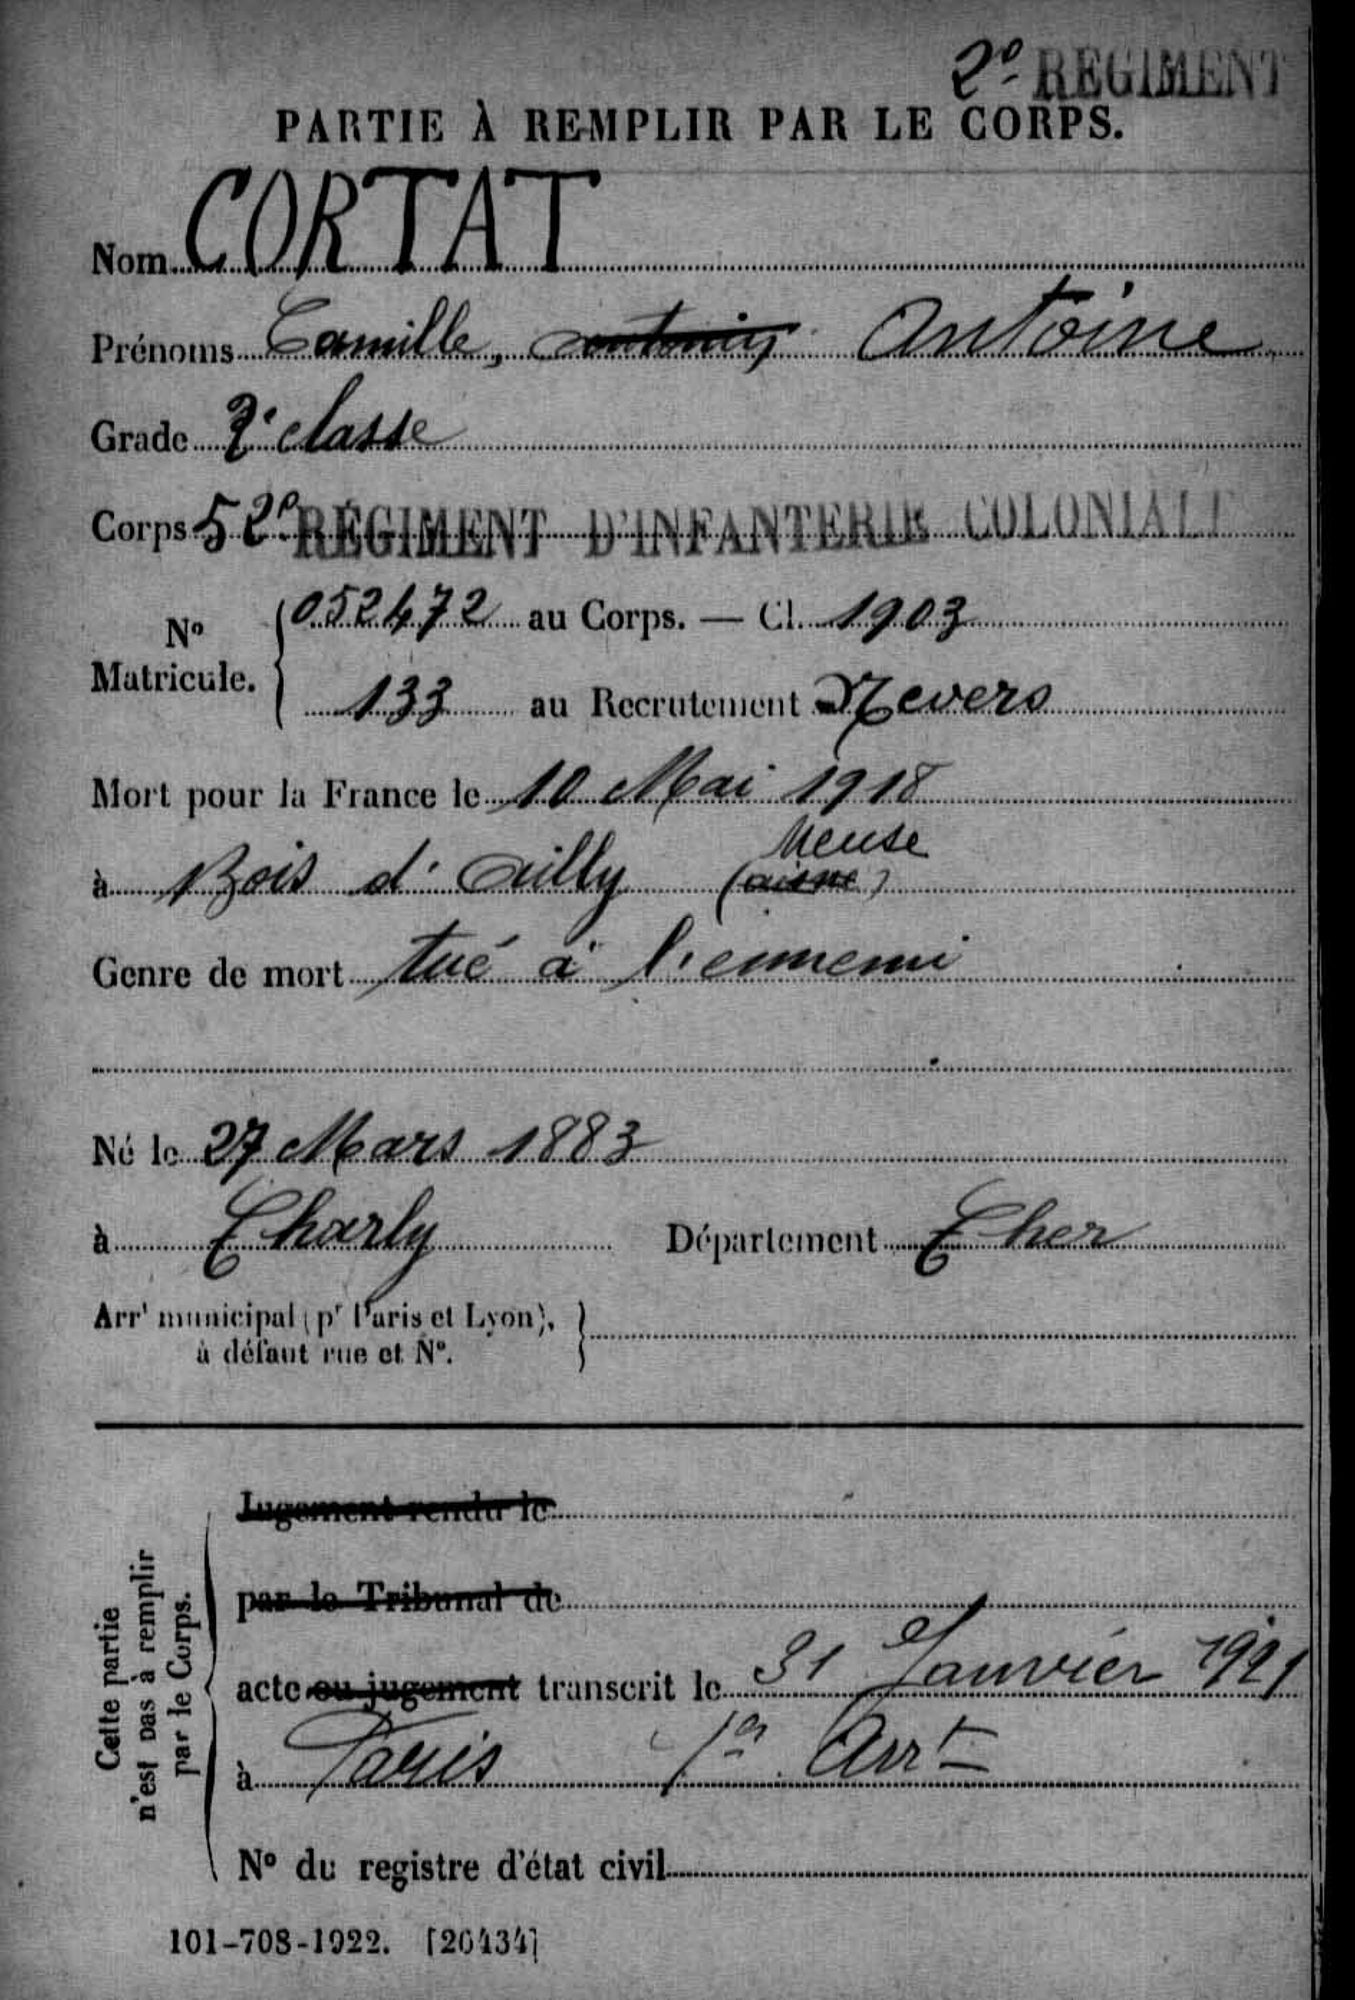 2e REGIMENT
PARTIE À REMPLIR PAR LE CORPS.
Nom CORTAT
Prénoms Camille, Antoine
Grade 2e classe
Corps 52e REGIMENT D'INFANTERIE COLONIALE
No Matricule. 052472 au Corps. — Cl. 1903
133 au Recrutement Nevers
Mort pour la France le 10 Mai 1918
à Bois d'Ailly (aisne) Meuse
Genre de mort tué à l'ennemi
Né le 27 Mars 1883
à Charly Département Cher
Arrt municipal (pr Paris et Lyon),
à défaut rue et No.
Cette partie
n'est pas à remplir
par le Corps.
Jugement rendu le
par le Tribunal de
acte ou jugement transcrit le 31 Janvier 1921
à Paris 1er Arrt
No du registre d'état civil
101-708-1922. [26434]